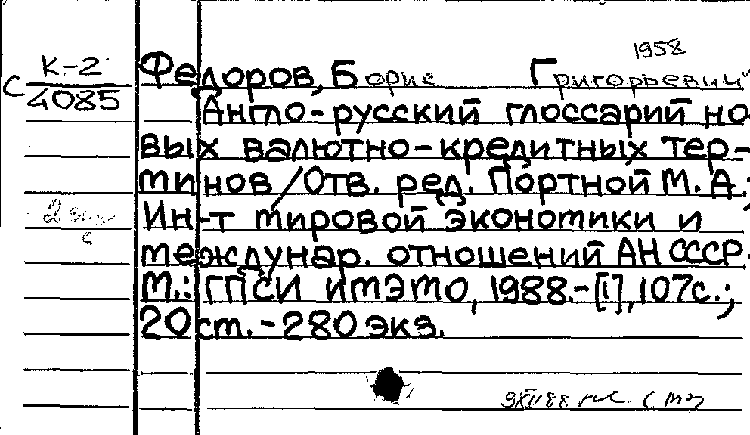 1958
С К-2 Федоров, Борис Григорьевич
4085
Англо-русский глоссарий но-
вых валютно-кредитных тер-
минов/Отв. ред. Портной М.А.;
Ин-т мировой экономики и
междунар. отношений АН СССР.-
М.: ГПСИ ИМЭМО, 1988.-[1],107с.;
20см.-280 экз.